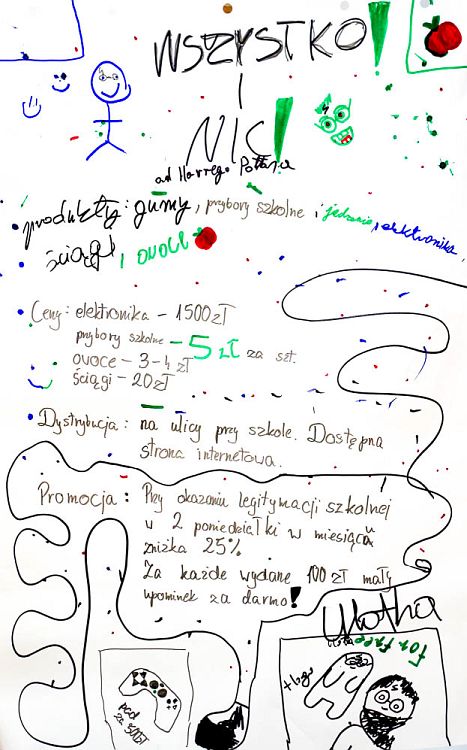 WSZYSTKO!
I
NIC!
od Harrego Pottera
• produkty: gumy, przybory szkolne, jedzenie, elektronika,
ściągi, OVOCE
• Ceny: elektronika - 1500zł
przybory szkolne - 5 zł za szt.
ovoce - 3-4 zł
ściągi - 20zł
• Dystrybucja: na ulicy przy szkole. Dostępna
strona internetowa.
Promocja: Przy okazaniu legitymacji szkolnej
v 2 poniedziałki w miesiącu
zniżka 25%
Za każde wydane 100 zł mały
upominek za darmo!
Ulotka
For free
+ logo
pad